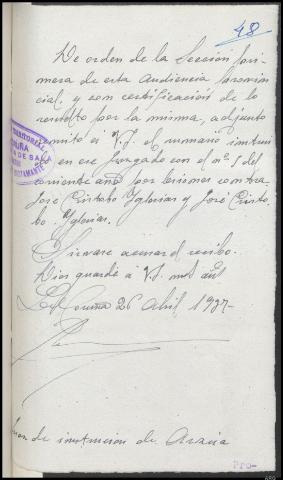 48
De orden de la Sección pri-
mera de esta Audiencia provin-
cial, y con certificación de lo
resuelto por la misma, adjunto
remito a V.S. el sumario instrui-
do en ese Juzgado con el nº 1 del
corriente año por lesiones contra
José Cristobo Yglesias y José Cristo-
bo Yglesias.
Sirvase acusar el recibo.
Dios guarde á V.S. mchs años
La Coruña 26 abril 1927-
Juez de instrucion de Arzúa
Pro-